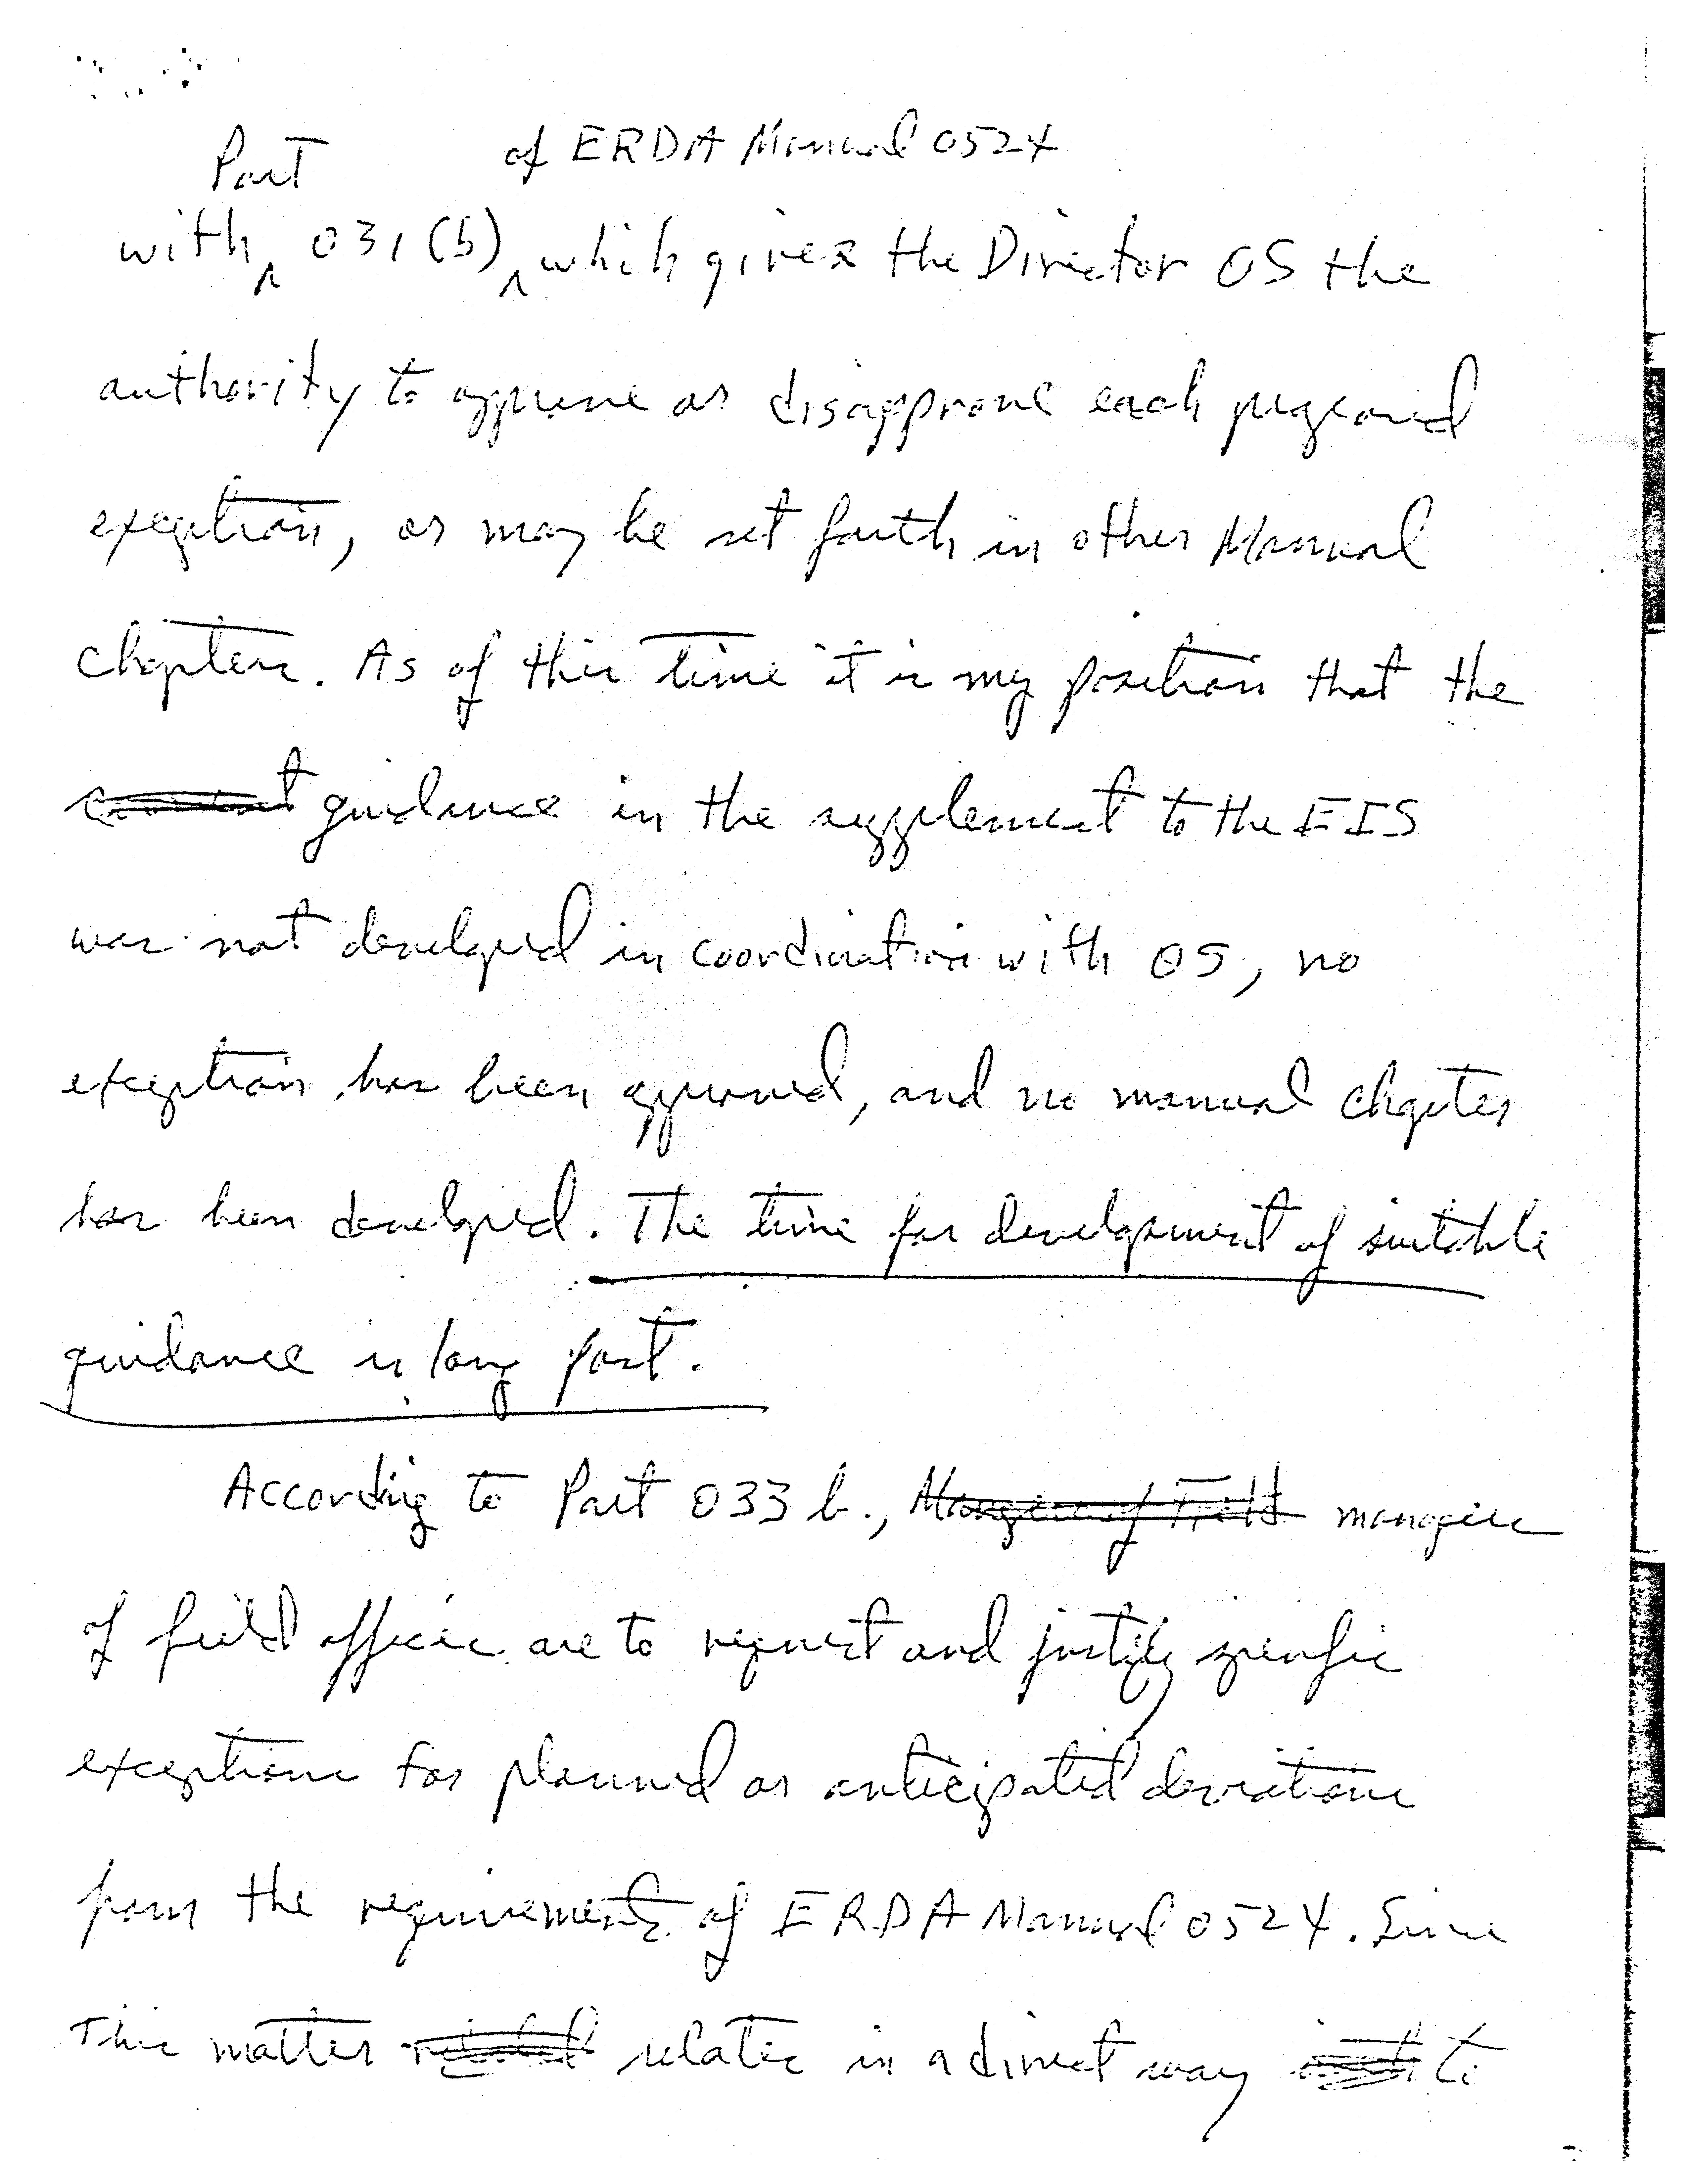 Part of ERDA Manual 0524
with ^ 031 (b) ^ which gives the Director OS the
authority to approve or disapprove each proposed
exception, or may be set forth in other Manual
chapters. As of this time it is my position that the
guidance in the supplement to the EIS
was not developed in coordination with OS, no
exception has been approved, and no manual chapter
has been developed. The time for development of suitable
guidance is long past.
According to Part 033 b., Managers of Field managers
of field offices are to request and justify specific
exceptions for planned or anticipated deviations
from the requirements of ERDA Manual 0524. Since
This matter related relates in a direct way to